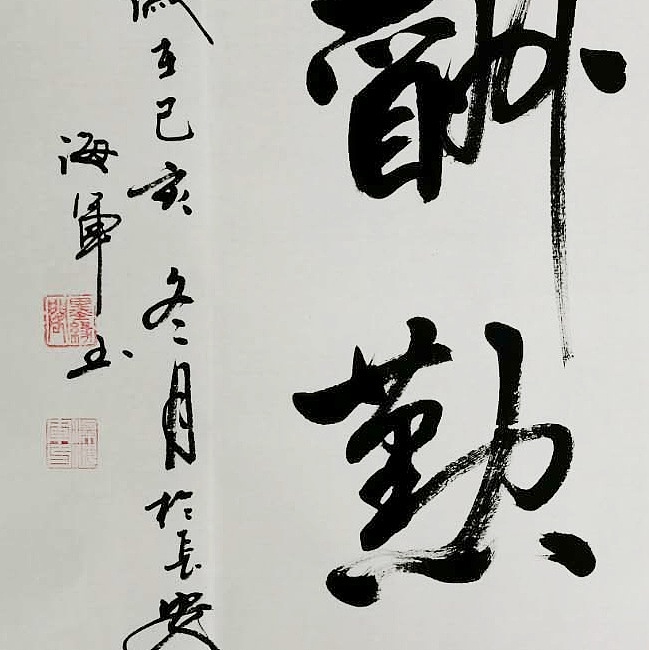 酬勤
歲在己亥冬月於長安
海軍书